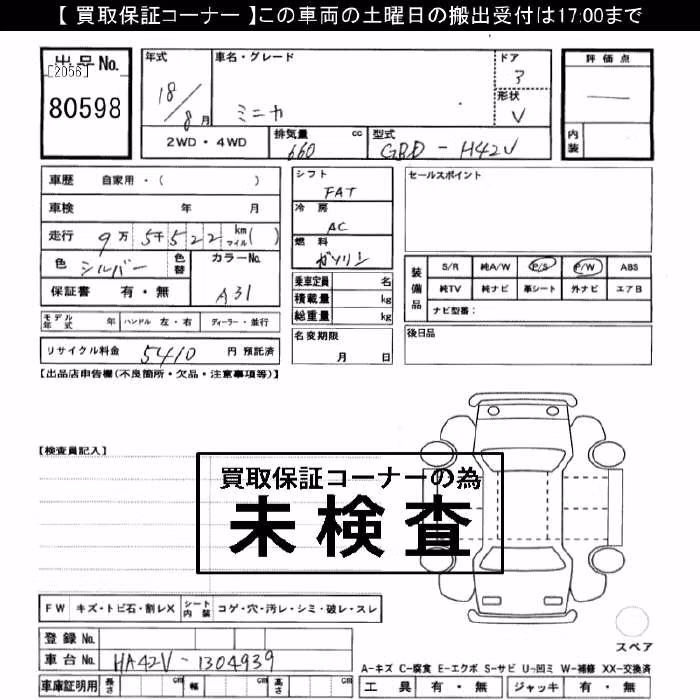 【 買取保証コーナー 】この車両の土曜日の搬出受付は17:00まで
出品No.
[2056]
80598
年式 車名・グレード ドア 評価点
18/8月 ミニカ 3 —
形状 V
2WD・4WD 排気量 cc 660 型式 GBD-H42V 内装
車歴 自家用・( )
車検 年 月
走行 9万5千522 km マイル( )
色 シルバー 色替 カラーNo. A31
保証書 有・無
モデル年式 年 ハンドル 左・右 ディーラー・並行
リサイクル料金 5410 円 預託済
シフト FAT
冷房 AC
燃料 ガソリン
乗車定員 名
積載量 kg
総重量 kg
名変期限
月 日
セールスポイント
装備品 S/R 純A/W P/S P/W ABS
純TV 純ナビ 革シート 外ナビ エアB
ナビ型番:
後日品
【出品店申告欄(不良箇所・欠品・注意事項等)】
【検査員記入】
買取保証コーナーの為
未検査
FW キズ・トビ石・割レX シート内装 コゲ・穴・汚レ・シミ・破レ・スレ
登録No.
車台No. HA42V-1304939
車庫証明用 長さ cm 幅 cm 高さ cm
スペア
A-キズ C-腐食 E-エクボ S-サビ U-凹ミ W-補修 XX-交換済
工具 有・無 ジャッキ 有・無